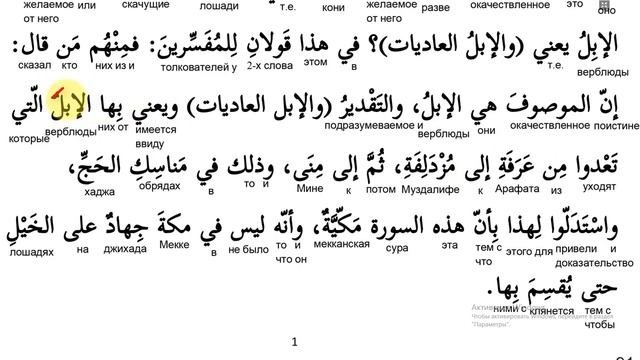 желаемое или скачущие лошади т.е. кони желаемое разве окачествленное это оно
от него от него
الإبِلُ يعني (والإبلُ العاديات)؟ في هذا قَولانِ لِلمُفَسِّرينَ: فمِنْهُم مَن قال:
сказал кто них из и толкователей у 2-х слова этом в т.е. верблюды
إنّ الموصوفَ هي الإبلُ، والتَقْديرُ (والإبل العاديات) ويعني بِها الإبلَ الّتي
которые верблюды них от имеется ввиду подразумеваемое и верблюды они окачествленное поистине
تَعْدوا مِن عَرَفَةِ إلى مُزْدَلِفَةِ، ثُمَّ إلى مِنَى، وذلك في مَناسِكِ الحَجِّ،
хаджа обрядах в то и Мине к потом Муздалифе к Арафата из уходят
واسْتَدَلّوا لِهذا بِأنّ هذه السورة مَكِّيَّةٌ، وأنّه ليس في مكةَ جِهادٌ على الخَيْلِ
лошадях на джихада Мекке в не было то и что он мекканская сура эта тем с что этого для привели и доказательство
حتى يُقسِمَ بِها.
ними с клянется тем с чтобы
Чтобы активировать Windows, перейдите в раздел "Параметры".
1